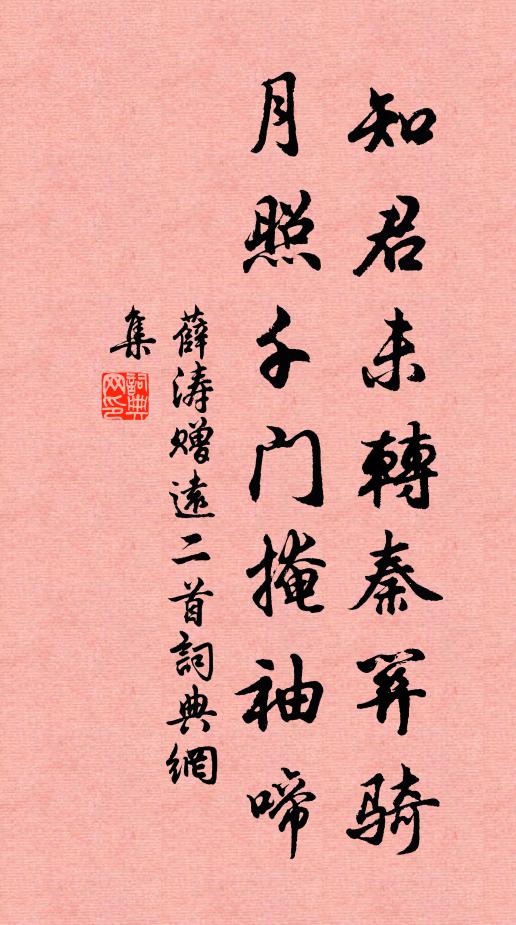 知君未轉秦關騎
月照千門掩袖啼
薛濤贈遠二首詞典網
集
詞典
网印